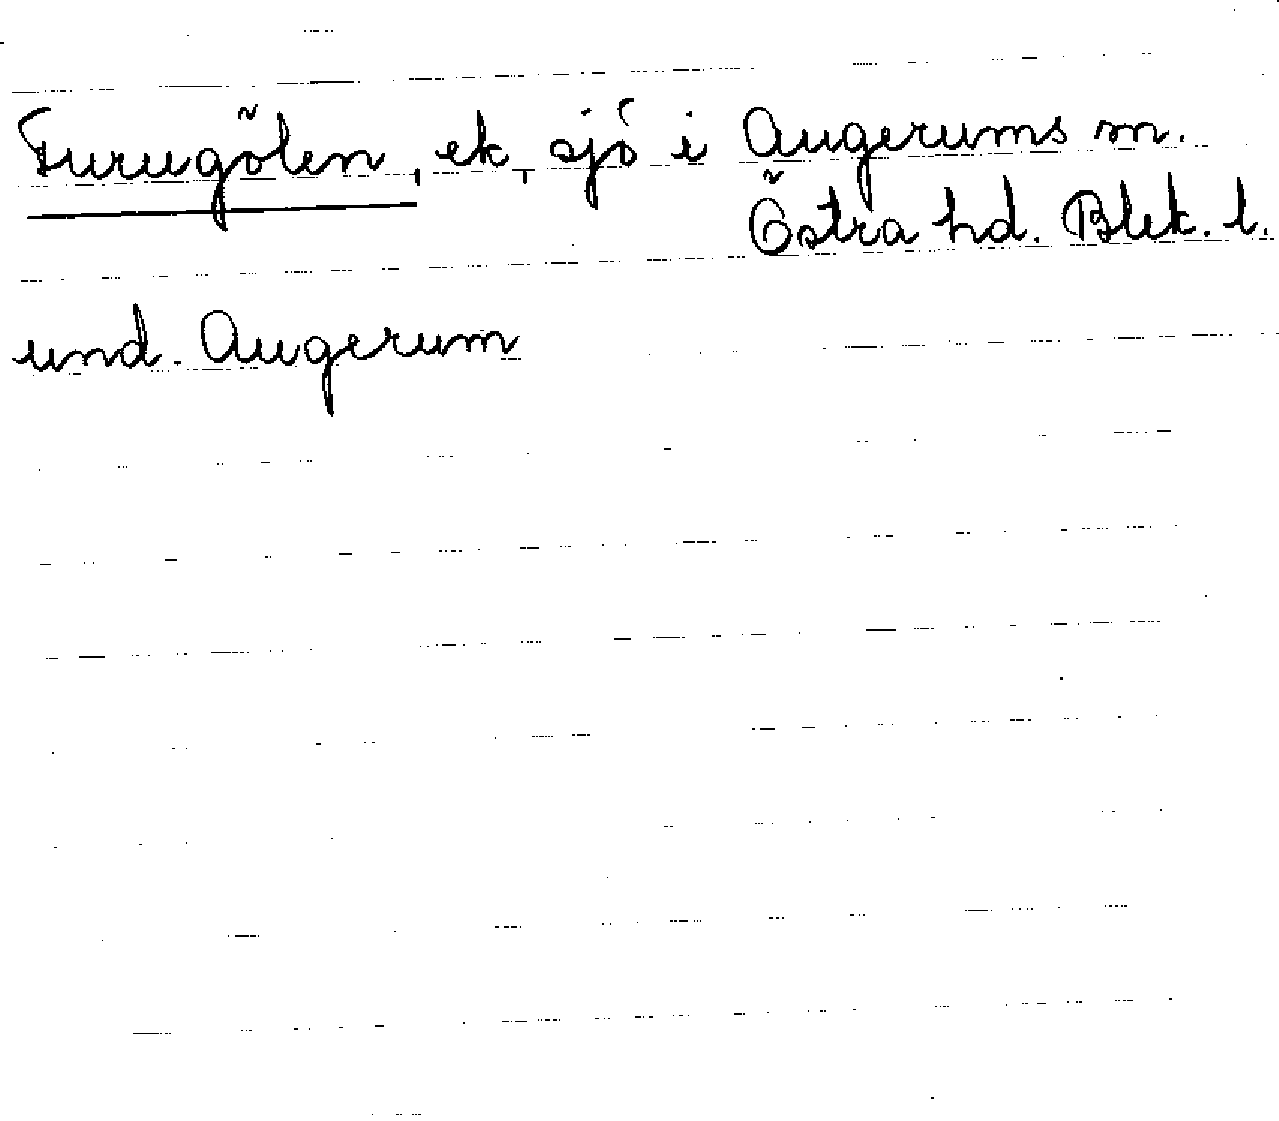 Furugölen, ek, sjö i Augerums sn.
Östra hd. Blek. l.
und. Augerum